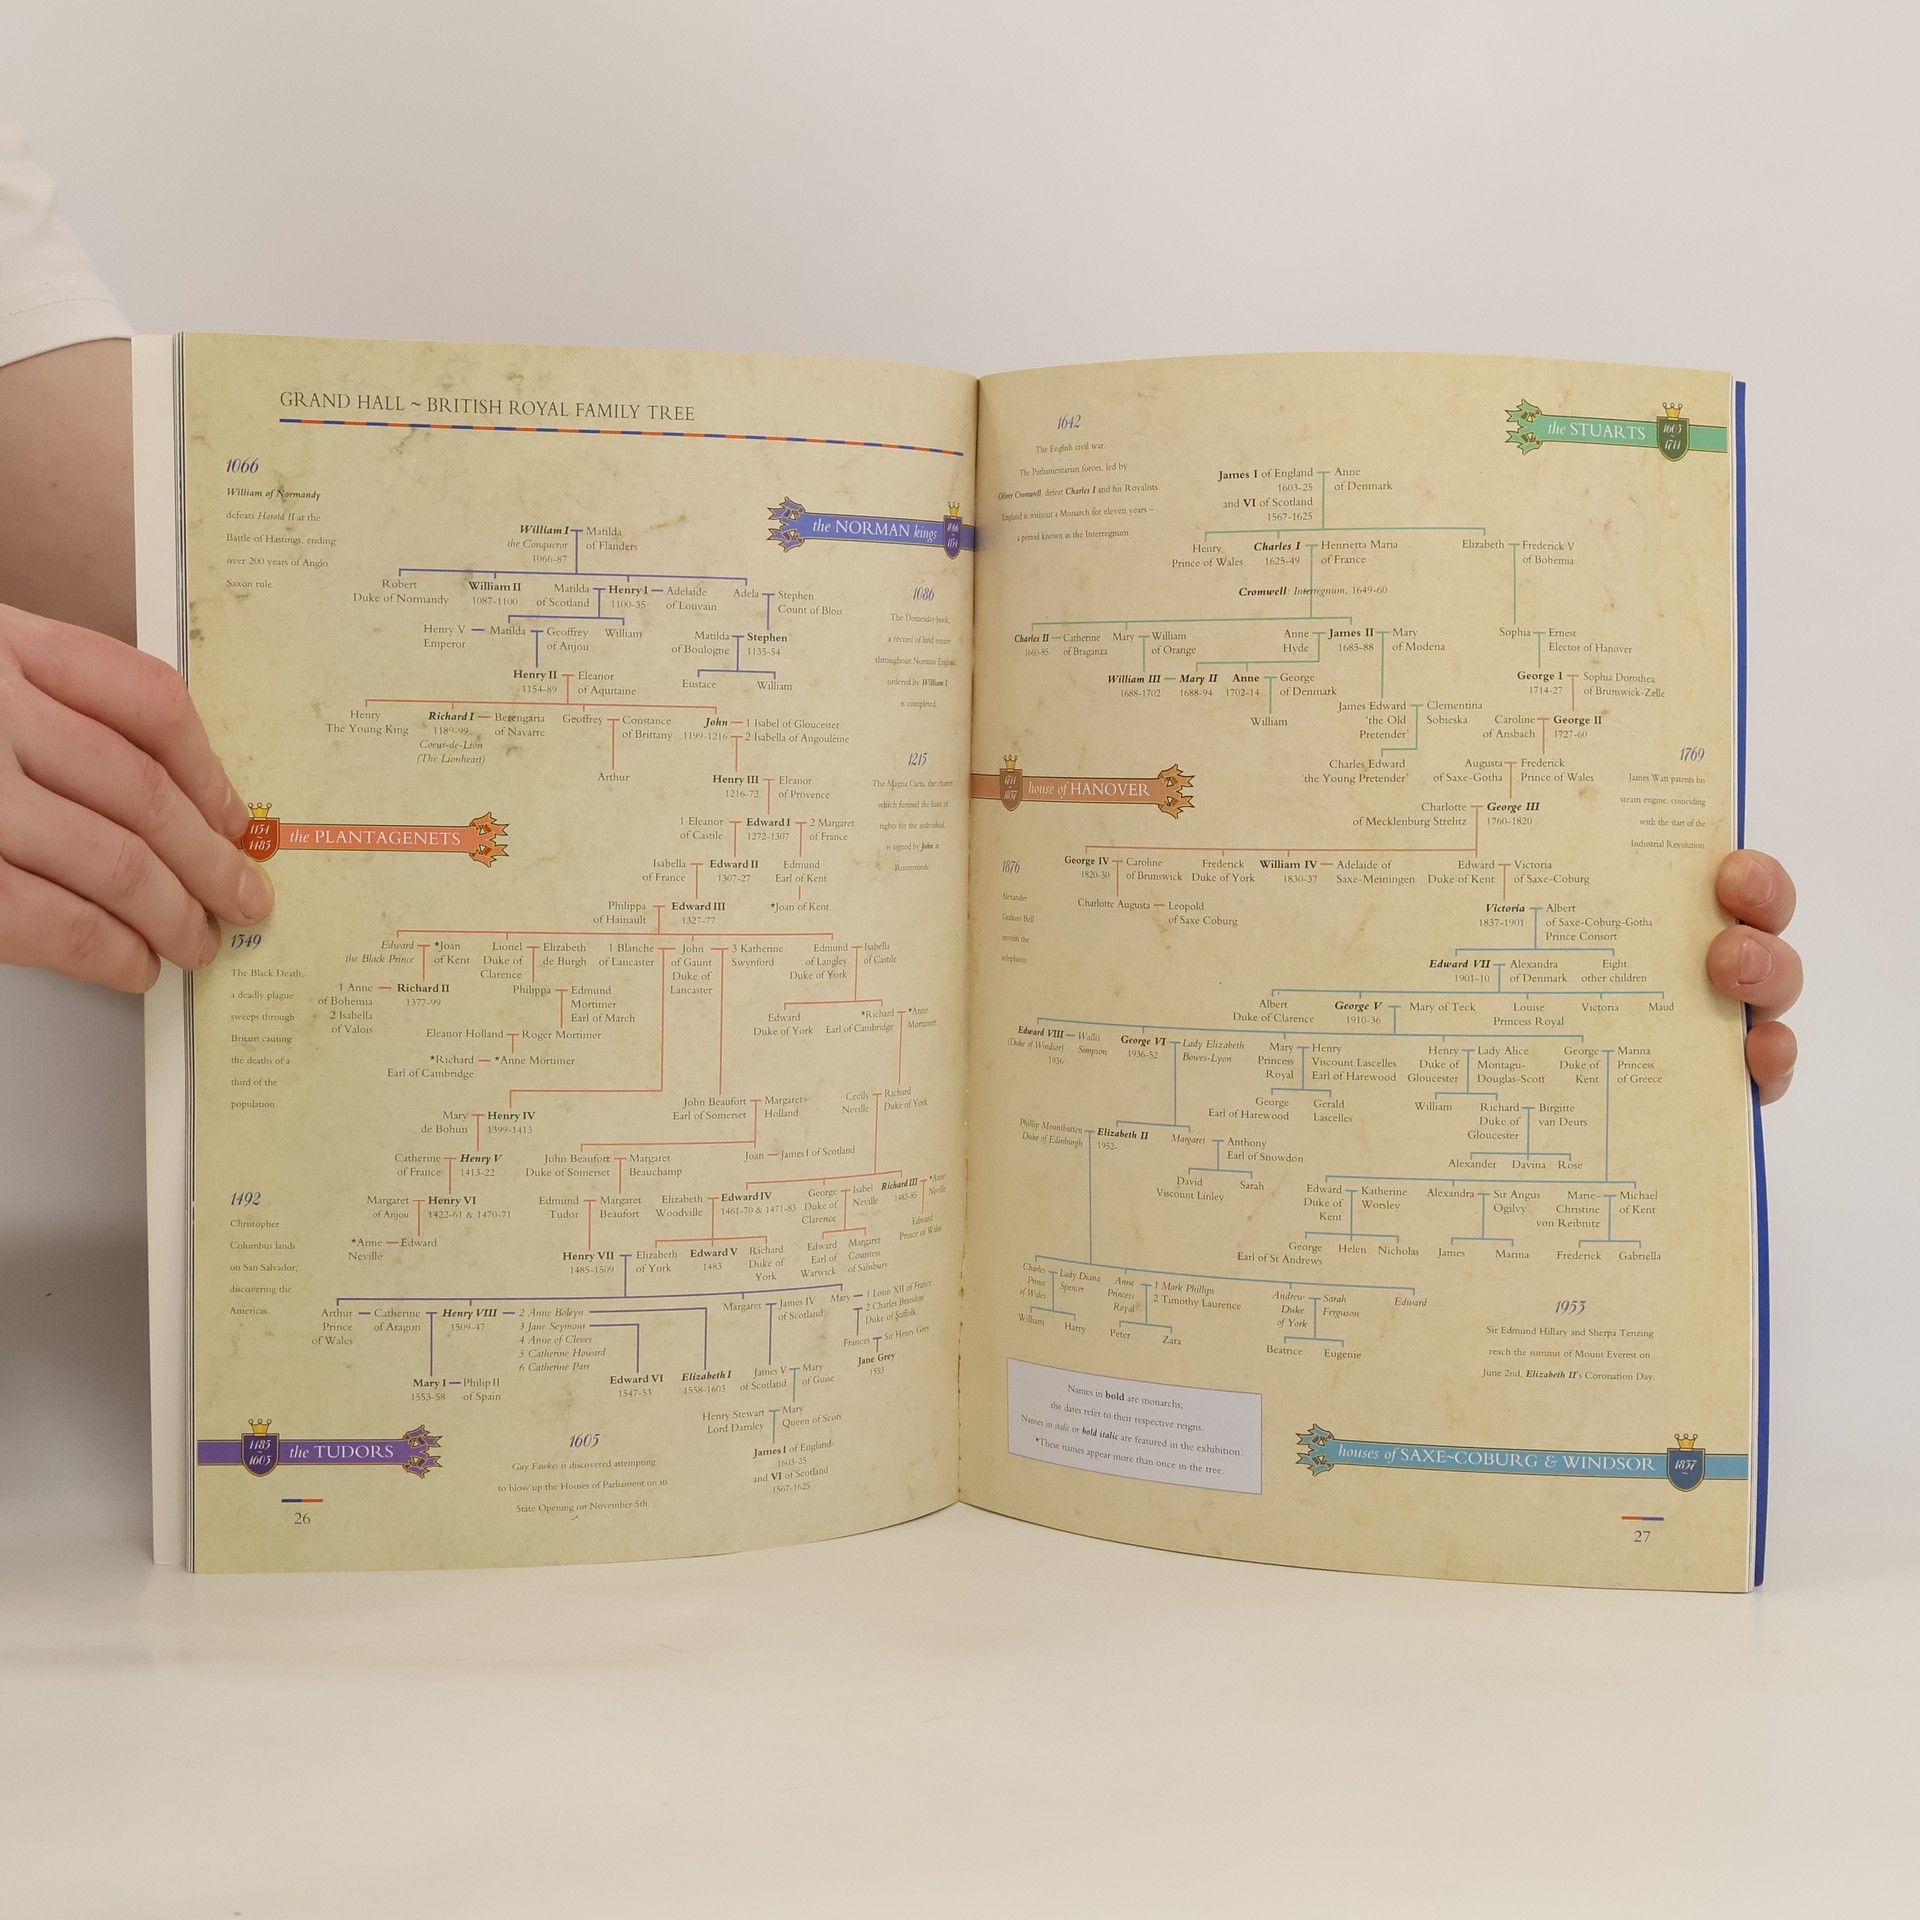 GRAND HALL ~ BRITISH ROYAL FAMILY TREE
1066
William of Normandy
defeats Harold II at the
Battle of Hastings, ending
over 200 years of Anglo
Saxon rule.
the NORMAN kings
William I
the Conqueror
1066-87
Matilda
of Flanders
Robert
Duke of Normandy
William II
1087-1100
Matilda
of Scotland
Henry I
1100-35
Adelaide
of Louvain
Adela
Stephen
Count of Blois
Henry V
Emperor
Matilda
Geoffrey
of Anjou
William
Matilda
of Boulogne
Stephen
1135-54
Eustace
William
1086
The Domesday book,
a record of land tenure
throughout Norman England
ordered by William I
is completed.
Henry II
1154-89
Eleanor
of Aquitaine
Henry
The Young King
Richard I
1189-99
Coeur-de-Lion
(The Lionheart)
Berengaria
of Navarre
Geoffrey
Constance
of Brittany
John
1199-1216
1 Isabel of Gloucester
2 Isabella of Angoulême
Arthur
Henry III
1216-72
Eleanor
of Provence
1215
The Magna Carta, the charter
which formed the basis of
rights for the individual,
is signed by John at
Runnymede.
1154
1485
the PLANTAGENETS
1 Eleanor
of Castile
Edward I
1272-1307
2 Margaret
of France
Isabella
of France
Edward II
1307-27
Edmund
Earl of Kent
Philippa
of Hainault
Edward III
1327-77
*Joan of Kent
1349
The Black Death,
a deadly plague
sweeps through
Britain causing
the deaths of a
third of the
population.
Edward
the Black Prince
*Joan
of Kent
Lionel
Duke of
Clarence
Elizabeth
de Burgh
1 Blanche
of Lancaster
John
of Gaunt
Duke of
Lancaster
3 Katherine
Swynford
Edmund
of Langley
Duke of York
Isabella
of Castile
1 Anne
of Bohemia
2 Isabella
of Valois
Richard II
1377-99
Philippa
Edmund
Mortimer
Earl of March
Edward
Duke of York
*Richard
Earl of Cambridge
*Anne
Mortimer
Eleanor Holland
Roger Mortimer
*Richard
Earl of Cambridge
*Anne Mortimer
Mary
de Bohun
Henry IV
1399-1413
John Beaufort
Earl of Somerset
Margaret
Holland
Cecily
Neville
Richard
Duke of York
Catherine
of France
Henry V
1413-22
John Beaufort
Duke of Somerset
Margaret
Beauchamp
Joan
James I of Scotland
1492
Christopher
Columbus lands
on San Salvador,
discovering the
Americas.
Margaret
of Anjou
Henry VI
1422-61 & 1470-71
Edmund
Tudor
Margaret
Beaufort
Elizabeth
Woodville
Edward IV
1461-70 & 1471-83
George
Duke of
Clarence
Isabel
Neville
Richard III
1483-85
*Anne
Neville
Edward
Prince of Wales
*Anne
Neville
Edward
Henry VII
1485-1509
Elizabeth
of York
Edward V
1483
Richard
Duke of
York
Edward
Earl of
Warwick
Margaret
Countess
of Salisbury
Arthur
Prince
of Wales
Catherine
of Aragon
Henry VIII
1509-47
2 Anne Boleyn
3 Jane Seymour
4 Anne of Cleves
5 Catherine Howard
6 Catherine Parr
Margaret
James IV
of Scotland
Mary
1 Louis XII of France
2 Charles Brandon
Duke of Suffolk
Frances
Sir Henry Grey
Jane Grey
1553
Mary I
1553-58
Philip II
of Spain
Edward VI
1547-53
Elizabeth I
1558-1603
James V
of Scotland
Mary
of Guise
Henry Stewart
Lord Darnley
Mary
Queen of Scots
James I of England
1603-25
and VI of Scotland
1567-1625
1485
1603
the TUDORS
1605
Guy Fawkes is discovered attempting
to blow up the Houses of Parliament on its
State Opening on November 5th.
26
1642
The English civil war.
The Parliamentarian forces, led by
Oliver Cromwell, defeat Charles I and his Royalists.
England is without a Monarch for eleven years –
a period known as the Interregnum.
the STUARTS
1603
1714
James I of England
1603-25
and VI of Scotland
1567-1625
Anne
of Denmark
Henry
Prince of Wales
Charles I
1625-49
Henrietta Maria
of France
Elizabeth
Frederick V
of Bohemia
Cromwell: Interregnum, 1649-60
Charles II
1660-85
Catherine
of Braganza
Mary
William
of Orange
Anne
Hyde
James II
1685-88
Mary
of Modena
Sophia
Ernest
Elector of Hanover
William III
1688-1702
Mary II
1688-94
Anne
1702-14
George
of Denmark
William
George I
1714-27
Sophia Dorothea
of Brunswick-Zelle
James Edward
'the Old
Pretender'
Clementina
Sobieska
Caroline
of Ansbach
George II
1727-60
Charles Edward
'the Young Pretender'
Augusta
of Saxe-Gotha
Frederick
Prince of Wales
1769
James Watt patents his
steam engine, coinciding
with the start of the
Industrial Revolution.
1714
1837
house of HANOVER
Charlotte
of Mecklenburg Strelitz
George III
1760-1820
1876
Alexander
Graham Bell
invents the
telephone.
George IV
1820-30
Caroline
of Brunswick
Frederick
Duke of York
William IV
1830-37
Adelaide of
Saxe-Meiningen
Edward
Duke of Kent
Victoria
of Saxe-Coburg
Charlotte Augusta
Leopold
of Saxe Coburg
Victoria
1837-1901
Albert
of Saxe-Coburg-Gotha
Prince Consort
Edward VII
1901-10
Alexandra
of Denmark
Eight
other children
Albert
Duke of Clarence
George V
1910-36
Mary of Teck
Louise
Princess Royal
Victoria
Maud
Edward VIII
(Duke of Windsor)
1936
Wallis
Simpson
George VI
1936-52
Lady Elizabeth
Bowes-Lyon
Mary
Princess
Royal
Henry
Viscount Lascelles
Earl of Harewood
Henry
Duke of
Gloucester
Lady Alice
Montagu-
Douglas-Scott
George
Duke of
Kent
Marina
Princess
of Greece
George
Earl of Harewood
Gerald
Lascelles
William
Richard
Duke of
Gloucester
Birgitte
van Deurs
Phillip Mountbatten
Duke of Edinburgh
Elizabeth II
1952-
Margaret
Anthony
Earl of Snowdon
David
Viscount Linley
Sarah
Alexander
Davina
Rose
Edward
Duke of
Kent
Katherine
Worsley
Alexandra
Sir Angus
Ogilvy
Marie-
Christine
von Reibnitz
Michael
of Kent
George
Earl of St Andrews
Helen
Nicholas
James
Marina
Frederick
Gabriella
Charles
Prince
of Wales
Lady Diana
Spencer
Anne
Princess
Royal
1 Mark Phillips
2 Timothy Laurence
Andrew
Duke
of York
Sarah
Ferguson
Edward
William
Harry
Peter
Zara
Beatrice
Eugenie
1953
Sir Edmund Hillary and Sherpa Tenzing
reach the summit of Mount Everest on
June 2nd, Elizabeth II's Coronation Day.
Names in bold are monarchs;
the dates refer to their respective reigns.
Names in italic or bold italic are featured in the exhibition.
*These names appear more than once in the tree.
houses of SAXE~COBURG & WINDSOR
1837
27